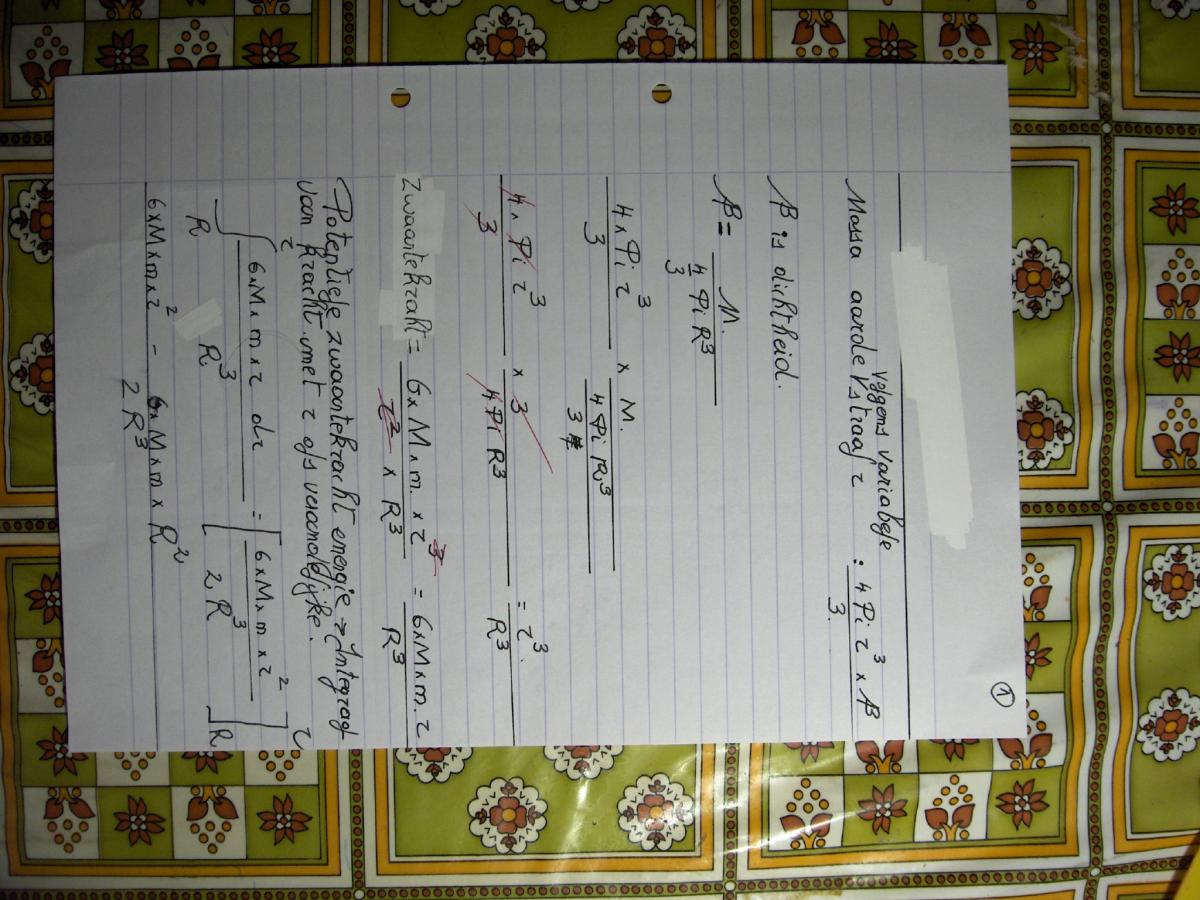 ①
Massa aarde volgens variabele straal r : 4 Pi r³ x β / 3.
β is dichtheid.
β = M. / 4/3 Pi R³
4 x Pi r³ / 3 x M. / 4 Pi R³ / 3
4 x Pi r³ / 3 x 3 / 4 Pi R³ = r³. / R³
Zwaartekracht = G x M x m. x r³ / r² x R³ = G x M x m. r / R³
Potentiele zwaartekracht energie = Integraal
van kracht met r als veranderlijke.
∫ r R G x M x m x r dr / R³ = [ G x M x m x r² / 2 R³ ] r R
G x M x m x r² - G x M x m x R² / 2 R³